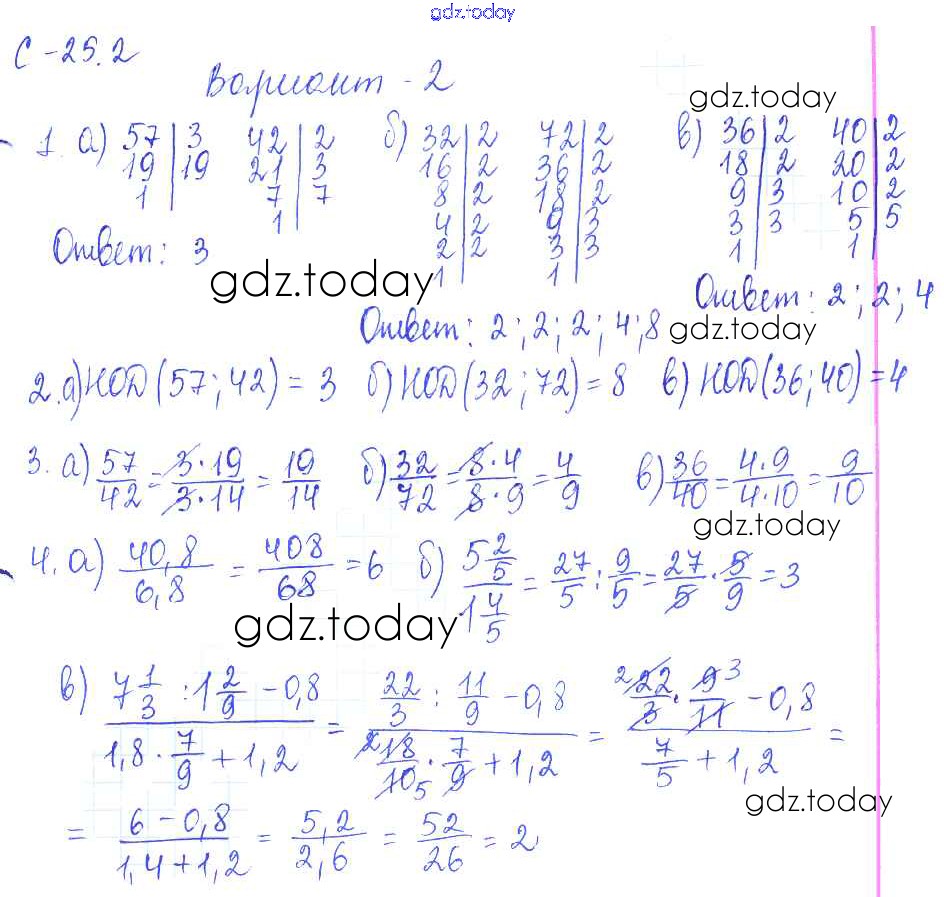 gdz.today
С-25.2
Вариант-2
gdz.today
1. а) 57 | 3   42 | 2   б) 32 | 2   72 | 2   в) 36 | 2   40 | 2
19 | 19   21 | 3   16 | 2   36 | 2   18 | 2   20 | 2
1 |   7 | 7   8 | 2   18 | 2   9 | 3   10 | 2
1 |   4 | 2   9 | 3   3 | 3   5 | 5
Ответ: 3   2 | 2   3 | 3   1 |   1 |
1 |   1 |
gdz.today
Ответ: 2; 2; 4
Ответ: 2; 2; 2; 4; 8
gdz.today
2. а) НОД(57; 42) = 3   б) НОД(32; 72) = 8   в) НОД(36; 40) = 4
3. а) 57/42 = 3·19/3·14 = 19/14   б) 32/72 = 8·4/8·9 = 4/9   в) 36/40 = 4·9/4·10 = 9/10
gdz.today
4. а) 40,8/6,8 = 408/68 = 6   б) 5 2/5 / 1 4/5 = 27/5 : 9/5 = 27/5 · 5/9 = 3
gdz.today
в) (7 1/3 : 1 2/9 - 0,8)/(1,8 · 7/9 + 1,2) = (22/3 : 11/9 - 0,8)/(2 18/10 5 · 7/9 + 1,2) = (2 22/3 · 9 3/11 - 0,8)/(7/5 + 1,2) =
gdz.today
= (6 - 0,8)/(1,4 + 1,2) = 5,2/2,6 = 52/26 = 2